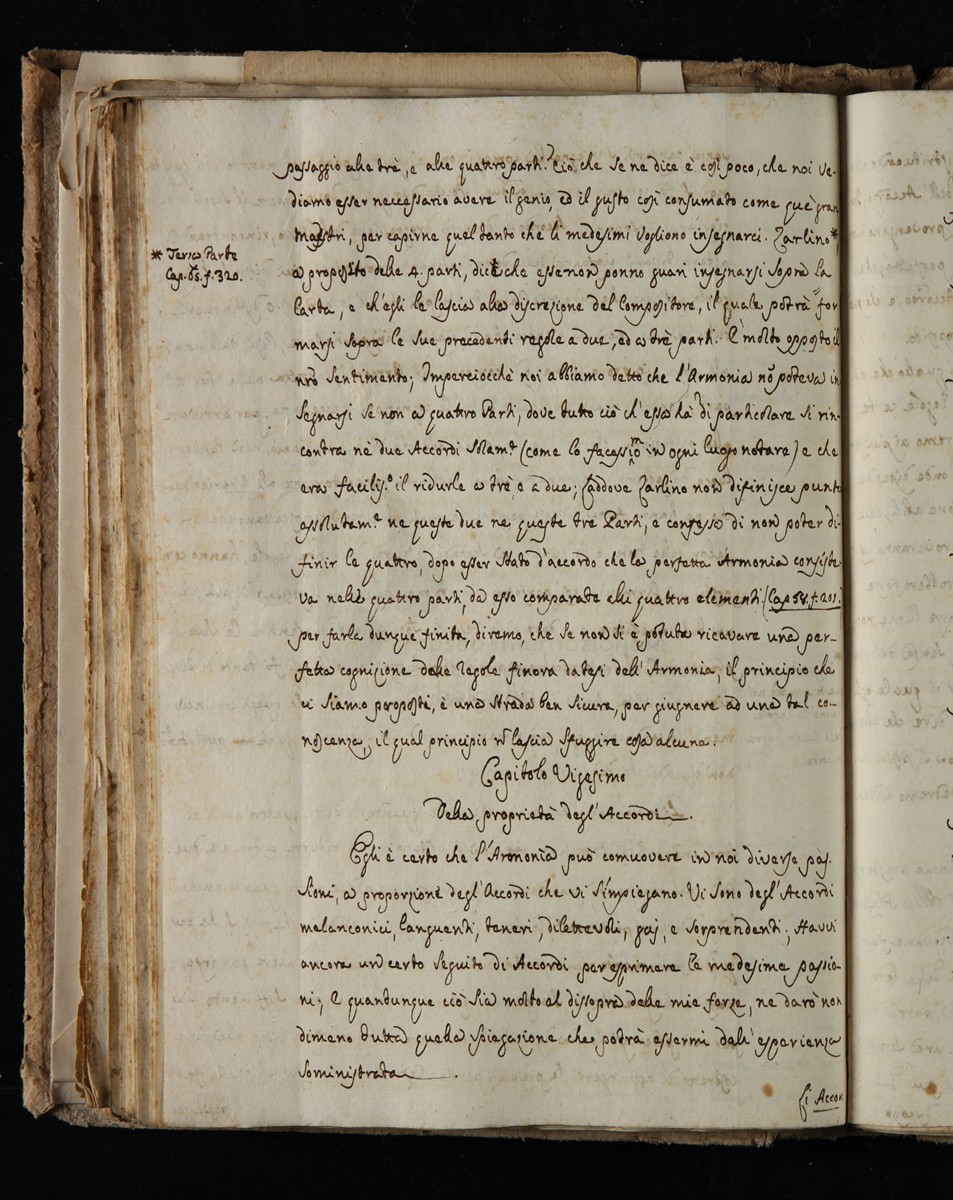 passaggio alle trè, e alle quattro parti? Ciò che se ne dice è così poco, che noi ve-
diamo esser necessario avere il genio, ed il gusto così consumato come que' gran
Maestri, per capirne quel tanto che li medesimi vogliono insegnarci. Zarlino*
* Terza Parte
Cap. 65. f. 320.
a proposito delle 4. parti, dice che esse non ponno guari insegnarsi sopra la
Carta, e ch'egli le lascia alla discrezione del Compositore, il quale potrà for
marsi sopra le sue precedenti regole a due, ed a trè parti. È molto opposto il
nrõ sentimento; Imperciocchè noi abbiamo detto che l'Armonia nõ poteva in
segnarsi se non a quattro Parti, dove tutto ciò ch'essa hà di particolare si rin-
contra nè due Accordi solam.e (come lo facessimo in ogni luogo notare) e che
era facilis.o il ridurle a trè, e a due; Laddove Zarlino non difinisce punto
assolutam.e ne queste due ne queste tre Parti, e confessa di non poter di-
finir le quattro, dopo esser stato d'accordo che la perfetta Armonia consiste
va nelle quattro parti, da esso comparate alli quattro elementi (Cap 58. f. 201.)
per farla dunque finita, diremo, che se non si è potuta ricavare una per-
fetta cognizione delle regole finora datesi dell'Armonia, il principio che
ci siamo proposti, è una strada ben sicura, per giugnere ad una tal co-
noscenza, il qual principio ñ lascia sfuggire cosa alcuna.
Capitolo Vigesimo
Della proprietà degl'Accordi.
Egli è certo che l'Armonia può comuovere in noi diverse pas-
sioni, a proporzione degl'Accordi che vi s'impiegano. Vi sono degl'Accordi
melanconici, languenti, teneri, dilettevoli, gaj, e sorprendenti; Havvi
ancora un certo seguito di Accordi per esprimere le medesime passio-
ni; E quandunque ciò sia molto al dissopra delle mie forze, ne darò non
dimeno tutta quella spiegazione che potrà essermi dall'esperienza
somministrata.
Li Accor